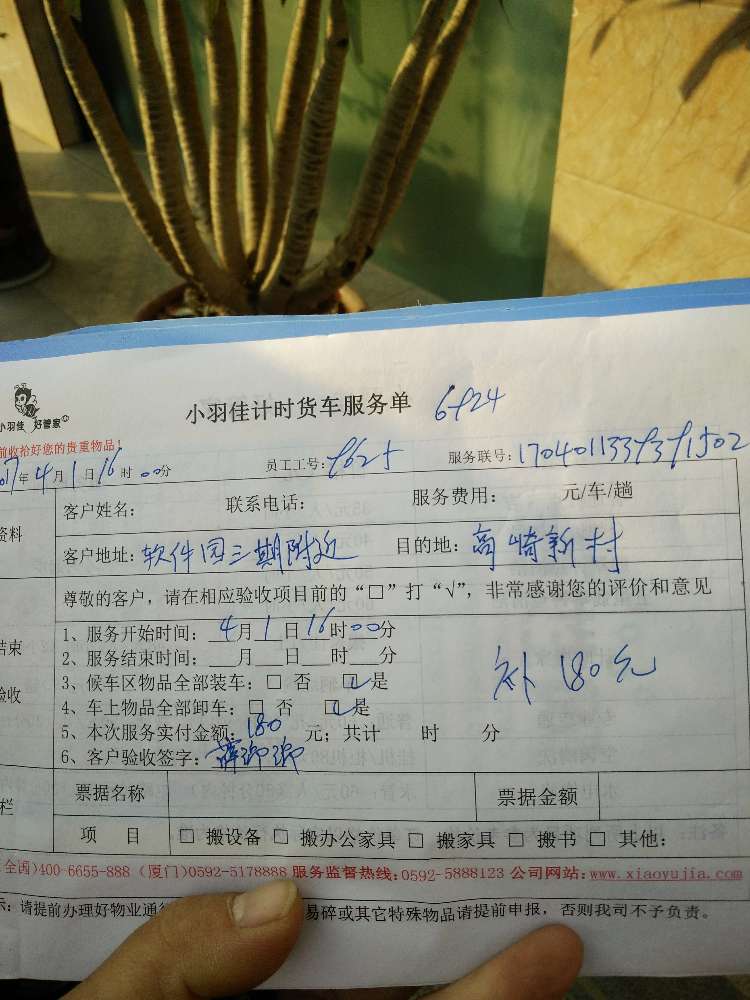 小羽佳计时货车服务单
小羽佳 好管家
前收拾好您的贵重物品!
017年4月1日16时00分 员工工号: 服务联号:
资料 客户姓名: 联系电话: 服务费用: 元/车/趟
客户地址: 软件园三期附近 目的地: 高崎新村
尊敬的客户，请在相应验收项目前的“□”打“√”，非常感谢您的评价和意见
1、服务开始时间: 4月1日16时00分
2、服务结束时间: 月 日 时 分
补180元
3、候车区物品全部装车: □ 否 □ 是
4、车上物品全部卸车: □ 否 □ 是
5、本次服务实付金额: 180元; 共计 时 分
6、客户验收签字:
结束
验收
栏 票据名称 票据金额
项目 □ 搬设备 □ 搬办公家具 □ 搬家具 □ 搬书 □ 其他:
全国)400-6655-888 (厦门)0592-5178888 服务监督热线:0592-5888123 公司网站:www.xiaoyujia.com
示: 请提前办理好物业通 易碎或其它特殊物品请提前申报，否则我司不予负责。